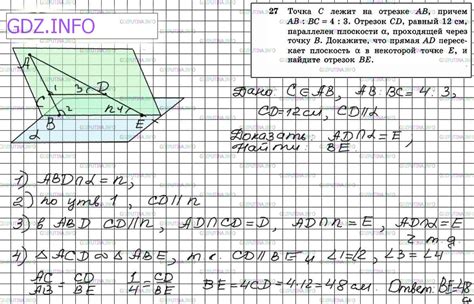 GDZ.INFO
27 Точка C лежит на отрезке AB, причем
AB : BC = 4 : 3. Отрезок CD, равный 12 см,
параллелен плоскости α, проходящей через
точку B. Докажите, что прямая AD пересе-
кает плоскость α в некоторой точке E, и
найдите отрезок BE.
A
1 3 D
C
B 2 n 4 E
α
Дано: C∈AB, AB:BC=4:3,
CD=12см, CD∥α
Доказать: AD∩α=E,
Найти: BE
1) ABD∩α=n;
2) по утв. 1, CD∥n
3) в ABD CD∥n, AD∩CD=D, AD∩n=E, AD∩α=E
ч.т.д
4) △ACD∾△ABE, т.к. CD∥BE и ∠1=∠2, ∠3=∠4
AC/AB=CD/BE 1/4=CD/BE BE=4CD=4·12=48см. Ответ: BE=48
см